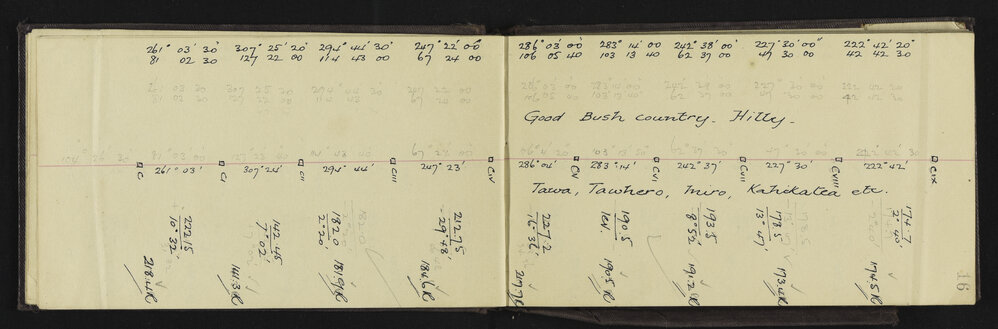 261° 03' 30" 307° 25' 20" 294° 44' 30" 247° 22' 00"
81 02 30 127 22 00 114 43 00 67 24 00
C 261° 03' CI 307° 24' CII 294° 44' CIII 247° 23' CIV
222.15
10° 32'
218.4 R
142.45
7° 02'
141.3 R
182.0
2° 20
181.9 R
212.75
29° 48'
184.6 R
286° 03' 00" 283° 14' 00 242° 38' 00" 227° 30' 00" 222° 42' 20"
106 05 40 103 13 40 62 37 00 47 30 00 42 42 30
Good Bush country. Hilly.
286° 04' CV 283° 14' CVI 242° 37' CVII 227° 30' CVIII 222° 42' CIX
Tawa, Tawhero, Miro, Kahikatea etc.
227.2
16° 36'
217.7 R
190.5
lev.
190.5 R
193.5
8° 52'
191.2 R
178.5
13° 47'
173.4 R
174.7
2° 40'
174.5 R
16